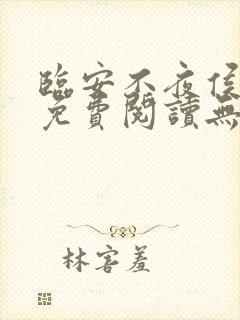 臨安不夜侯
免費閱讀無
林害羞